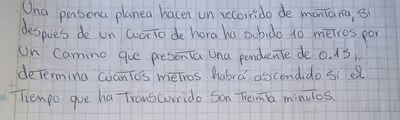 Una persona planea hacer un recorrido de montaña, si
después de un cuarto de hora ha subido 10 metros por
un camino que presenta una pendiente de 0.15,
determina cuantos metros habrá ascendido si el
tiempo que ha transcurrido son treinta minutos.